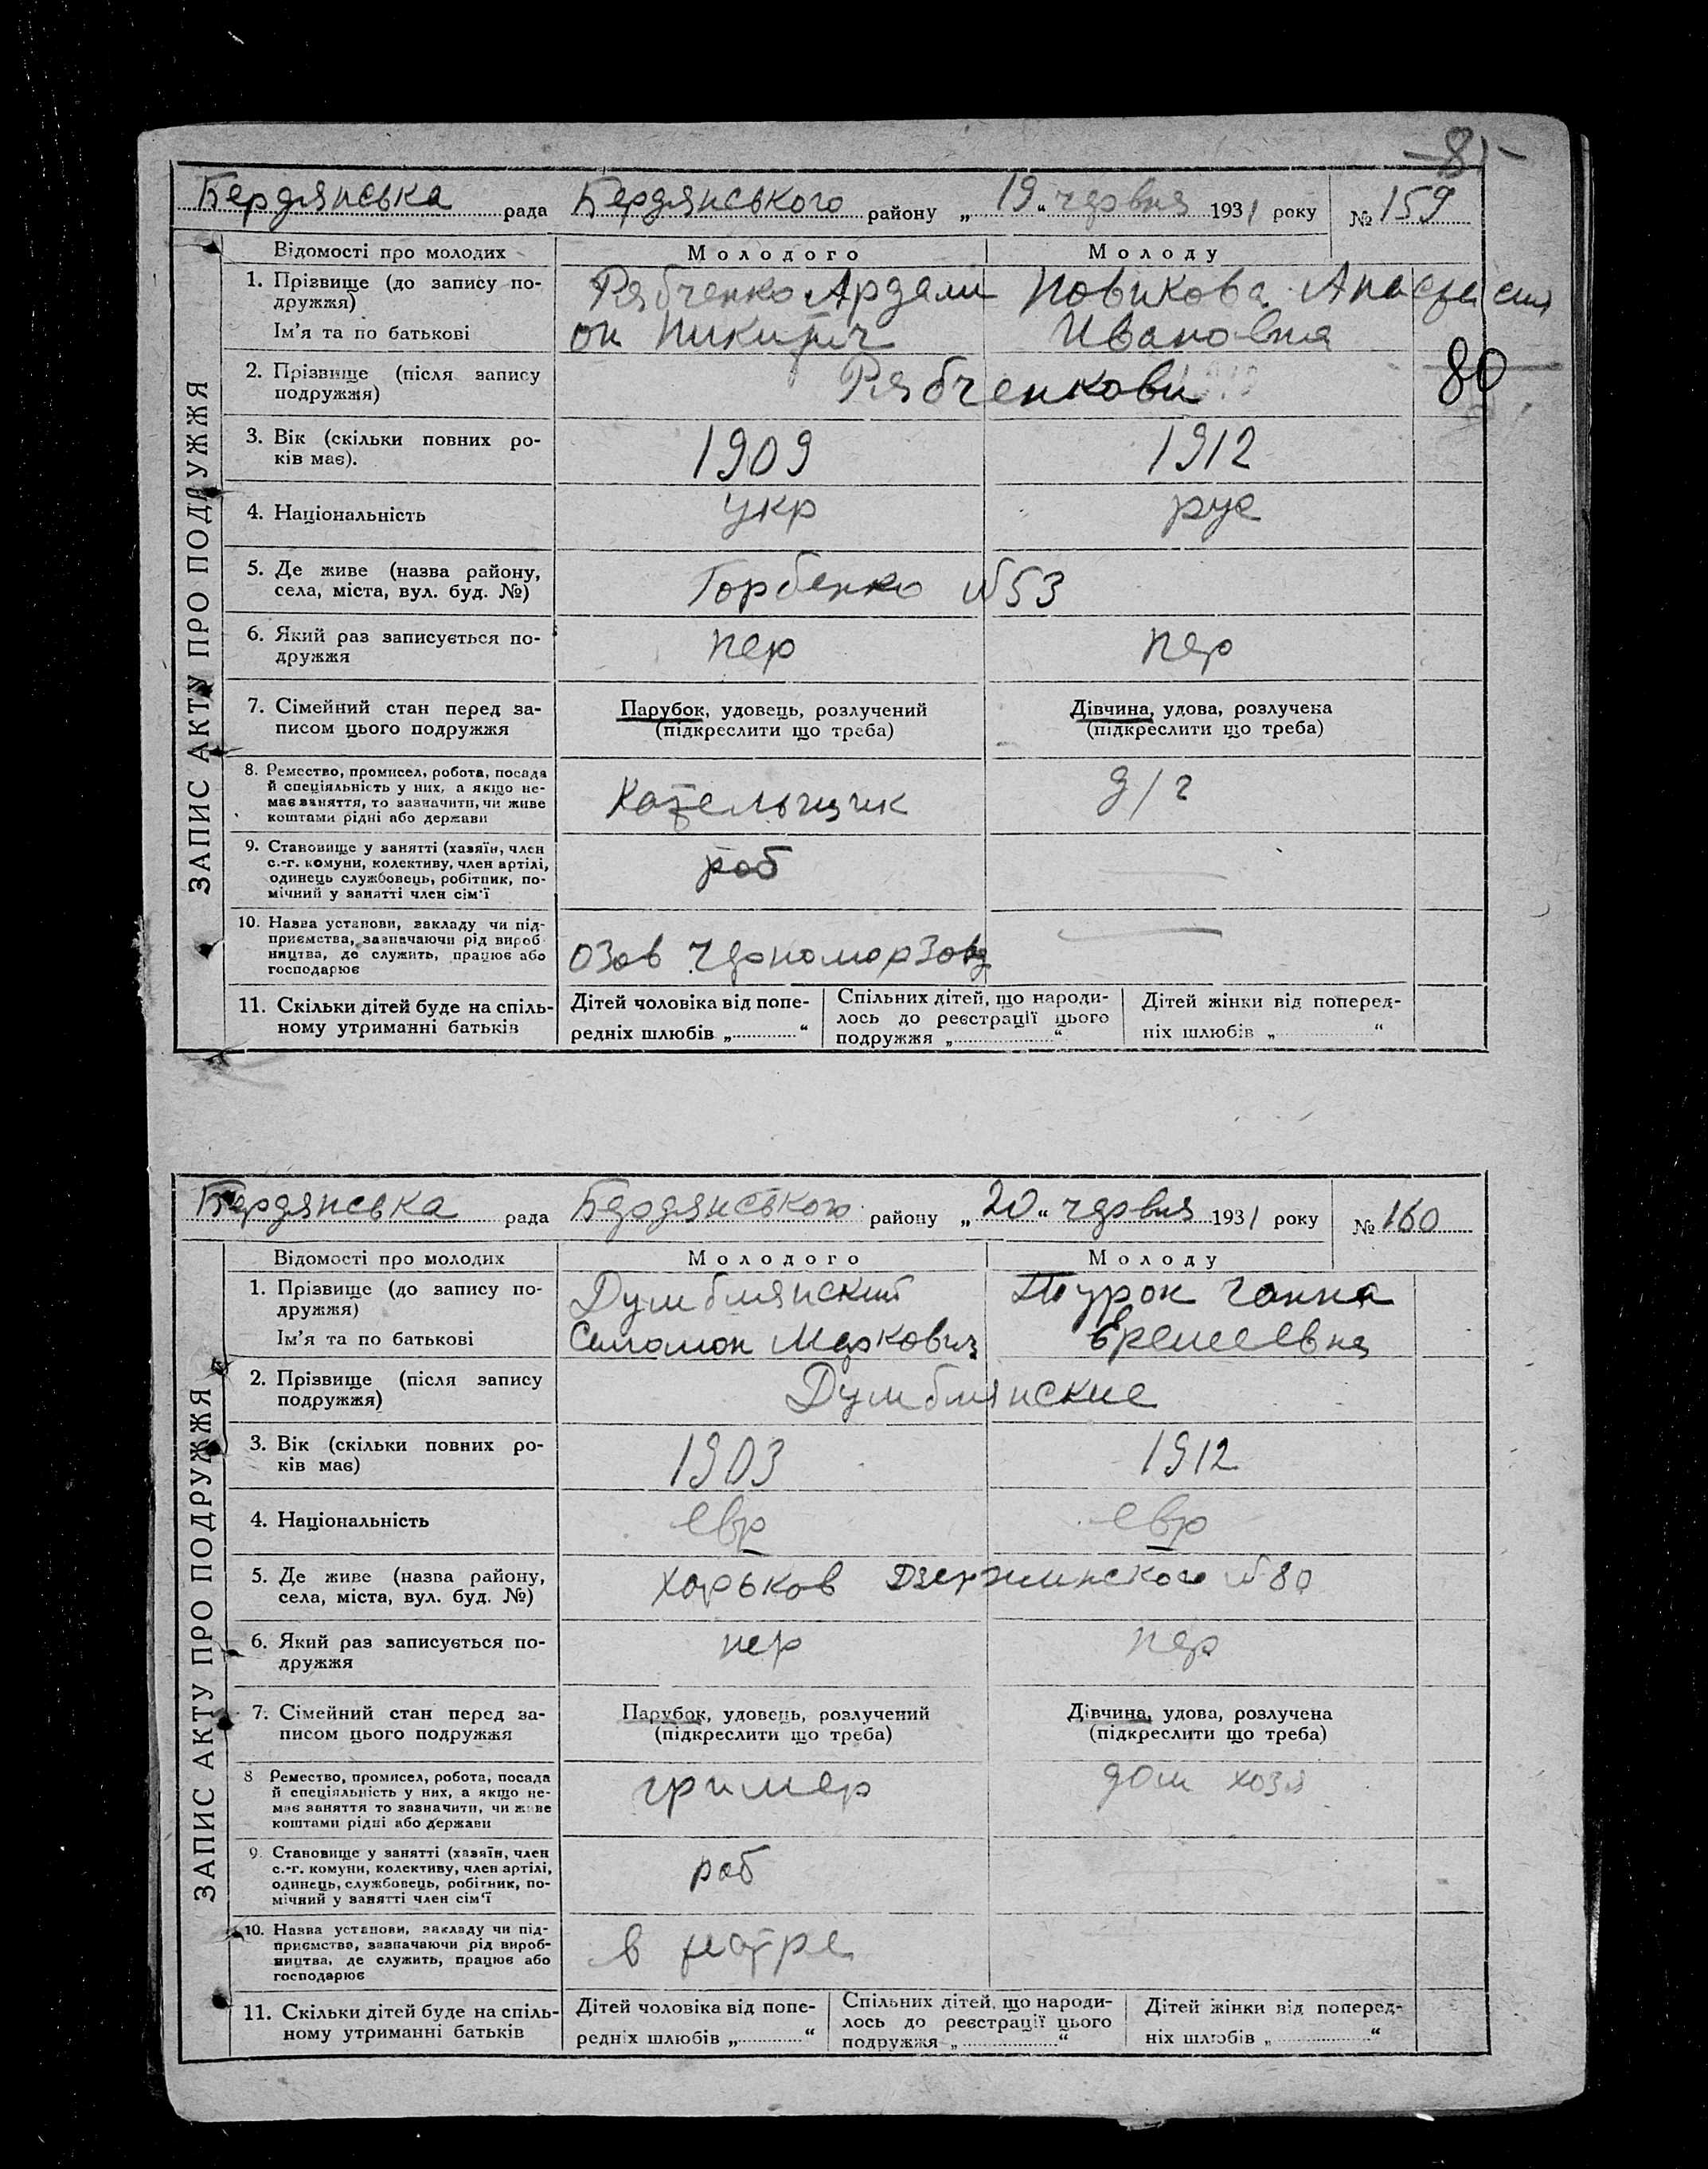 -81-
Бердянська рада Бердянського району „19“ червня 1931 року № 159
ЗАПИС АКТУ ПРО ПОДРУЖЖЯ
Відомості про молодих
Молодого
Молоду
1. Прізвище (до запису по-
дружжя)
Ім’я та по батькові
Рябченко Ардали
он Никитич
Новикова Анастасия
Ивановна
2. Прізвище (після запису
подружжя)
Рябченкови
80
3. Вік (скільки повних ро-
ків має).
1909
1912
4. Національність
укр
рус
5. Де живе (назва району,
села, міста, вул. буд. №)
Горбенко №53
6. Який раз записується по-
дружжя
пер
пер
7. Сімейний стан перед за-
писом цього подружжя
Парубок, удовець, розлучений
(підкреслити що треба)
Дівчина, удова, розлучена
(підкреслити що треба)
8. Ремество, промисел, робота, посада
й спеціяльність у них, а якщо не-
має заняття, то зазначити, чи живе
коштами рідні або держави
Котельщик
д/г
9. Становище у занятті (хазяїн, член
с.-г. комуни, колективу, член артілі,
одинець службовець, робітник, по-
мічний у занятті член сім’ї
роб
10. Назва установи, закладу чи під-
приємства, зазначаючи рід вироб-
ництва, де служить, працює або
господарює
Озов Черномор
11. Скільки дітей буде на спіль-
ному утриманні батьків
Дітей чоловіка від попе-
редніх шлюбів „ “
Спільних дітей, що народи-
лось до реєстрації цього
подружжя „ “
Дітей жінки від поперед-
ніх шлюбів „ “
Бердянська рада Бердянського району „20“ червня 1931 року № 160
ЗАПИС АКТУ ПРО ПОДРУЖЖЯ
Відомості про молодих
Молодого
Молоду
1. Прізвище (до запису по-
дружжя)
Ім’я та по батькові
Думблянский
Соломон Маркович
Турок Ганна
Еремеевна
2. Прізвище (після запису
подружжя)
Думблянские
3. Вік (скільки повних ро-
ків має)
1903
1912
4. Національність
евр
евр
5. Де живе (назва району,
села, міста, вул. буд. №)
Харьков Дзержинского №80
6. Який раз записується по-
дружжя
пер
пер
7. Сімейний стан перед за-
писом цього подружжя
Парубок, удовець, розлучений
(підкреслити що треба)
Дівчина, удова, розлучена
(підкреслити що треба)
8 Ремество, промисел, робота, посада
й спеціяльність у них, а якщо не-
має заняття то зазначити, чи живе
коштами рідні або держави
гример
дом хозя
9. Становище у занятті (хазяїн, член
с.-г. комуни, колективу, член артілі,
одинець, службовець, робітник, по-
мічний у занятті член сім’ї
роб
10. Назва установи, закладу чи під-
приємства, зазначаючи рід вироб-
ництва, де служить, працює або
господарює
в театре
11. Скільки дітей буде на спіль-
ному утриманні батьків
Дітей чоловіка від попе-
редніх шлюбів „ “
Спільних дітей, що народи-
лось до реєстрації цього
подружжя „ “
Дітей жінки від поперед-
ніх шлюбів „ “